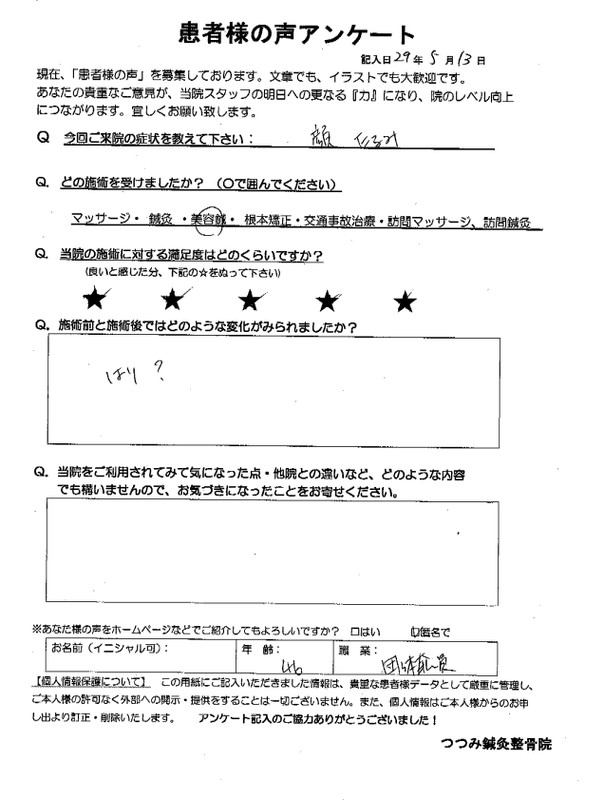 患者様の声アンケート
記入日29年5月13日
現在、「患者様の声」を募集しております。文章でも、イラストでも大歓迎です。
あなたの貴重なご意見が、当院スタッフの明日への更なる『力』になり、院のレベル向上
につながります。宜しくお願い致します。
Q 今回ご来院の症状を教えて下さい： 顔 たるみ
Q. どの施術を受けましたか？（〇で囲んでください）
マッサージ・ 鍼灸 ・美容鍼・ 根本矯正・交通事故治療・訪問マッサージ、訪問鍼灸
Q. 当院の施術に対する満足度はどのくらいですか？
（良いと感じた分、下記の☆をぬって下さい）
★ ★ ★ ★ ★
Q. 施術前と施術後ではどのような変化がみられましたか？
はり？
Q. 当院をご利用されてみて気になった点・他院との違いなど、どのような内容
でも構いませんので、お気づきになったことをお寄せください。
※あなた様の声をホームページなどでご紹介してもよろしいですか？ 口はい 口匿名で
お名前（イニシャル可）： 年 齢： 46 職 業： 団体職員
【個人情報保護について】 この用紙にご記入いただきました情報は、貴重な患者様データとして厳重に管理し、
ご本人様の許可なく外部への開示・提供をすることは一切ございません。また、個人情報はご本人様からのお申
し出より訂正・削除いたします。 アンケート記入のご協力ありがとうございました！
つつみ鍼灸整骨院